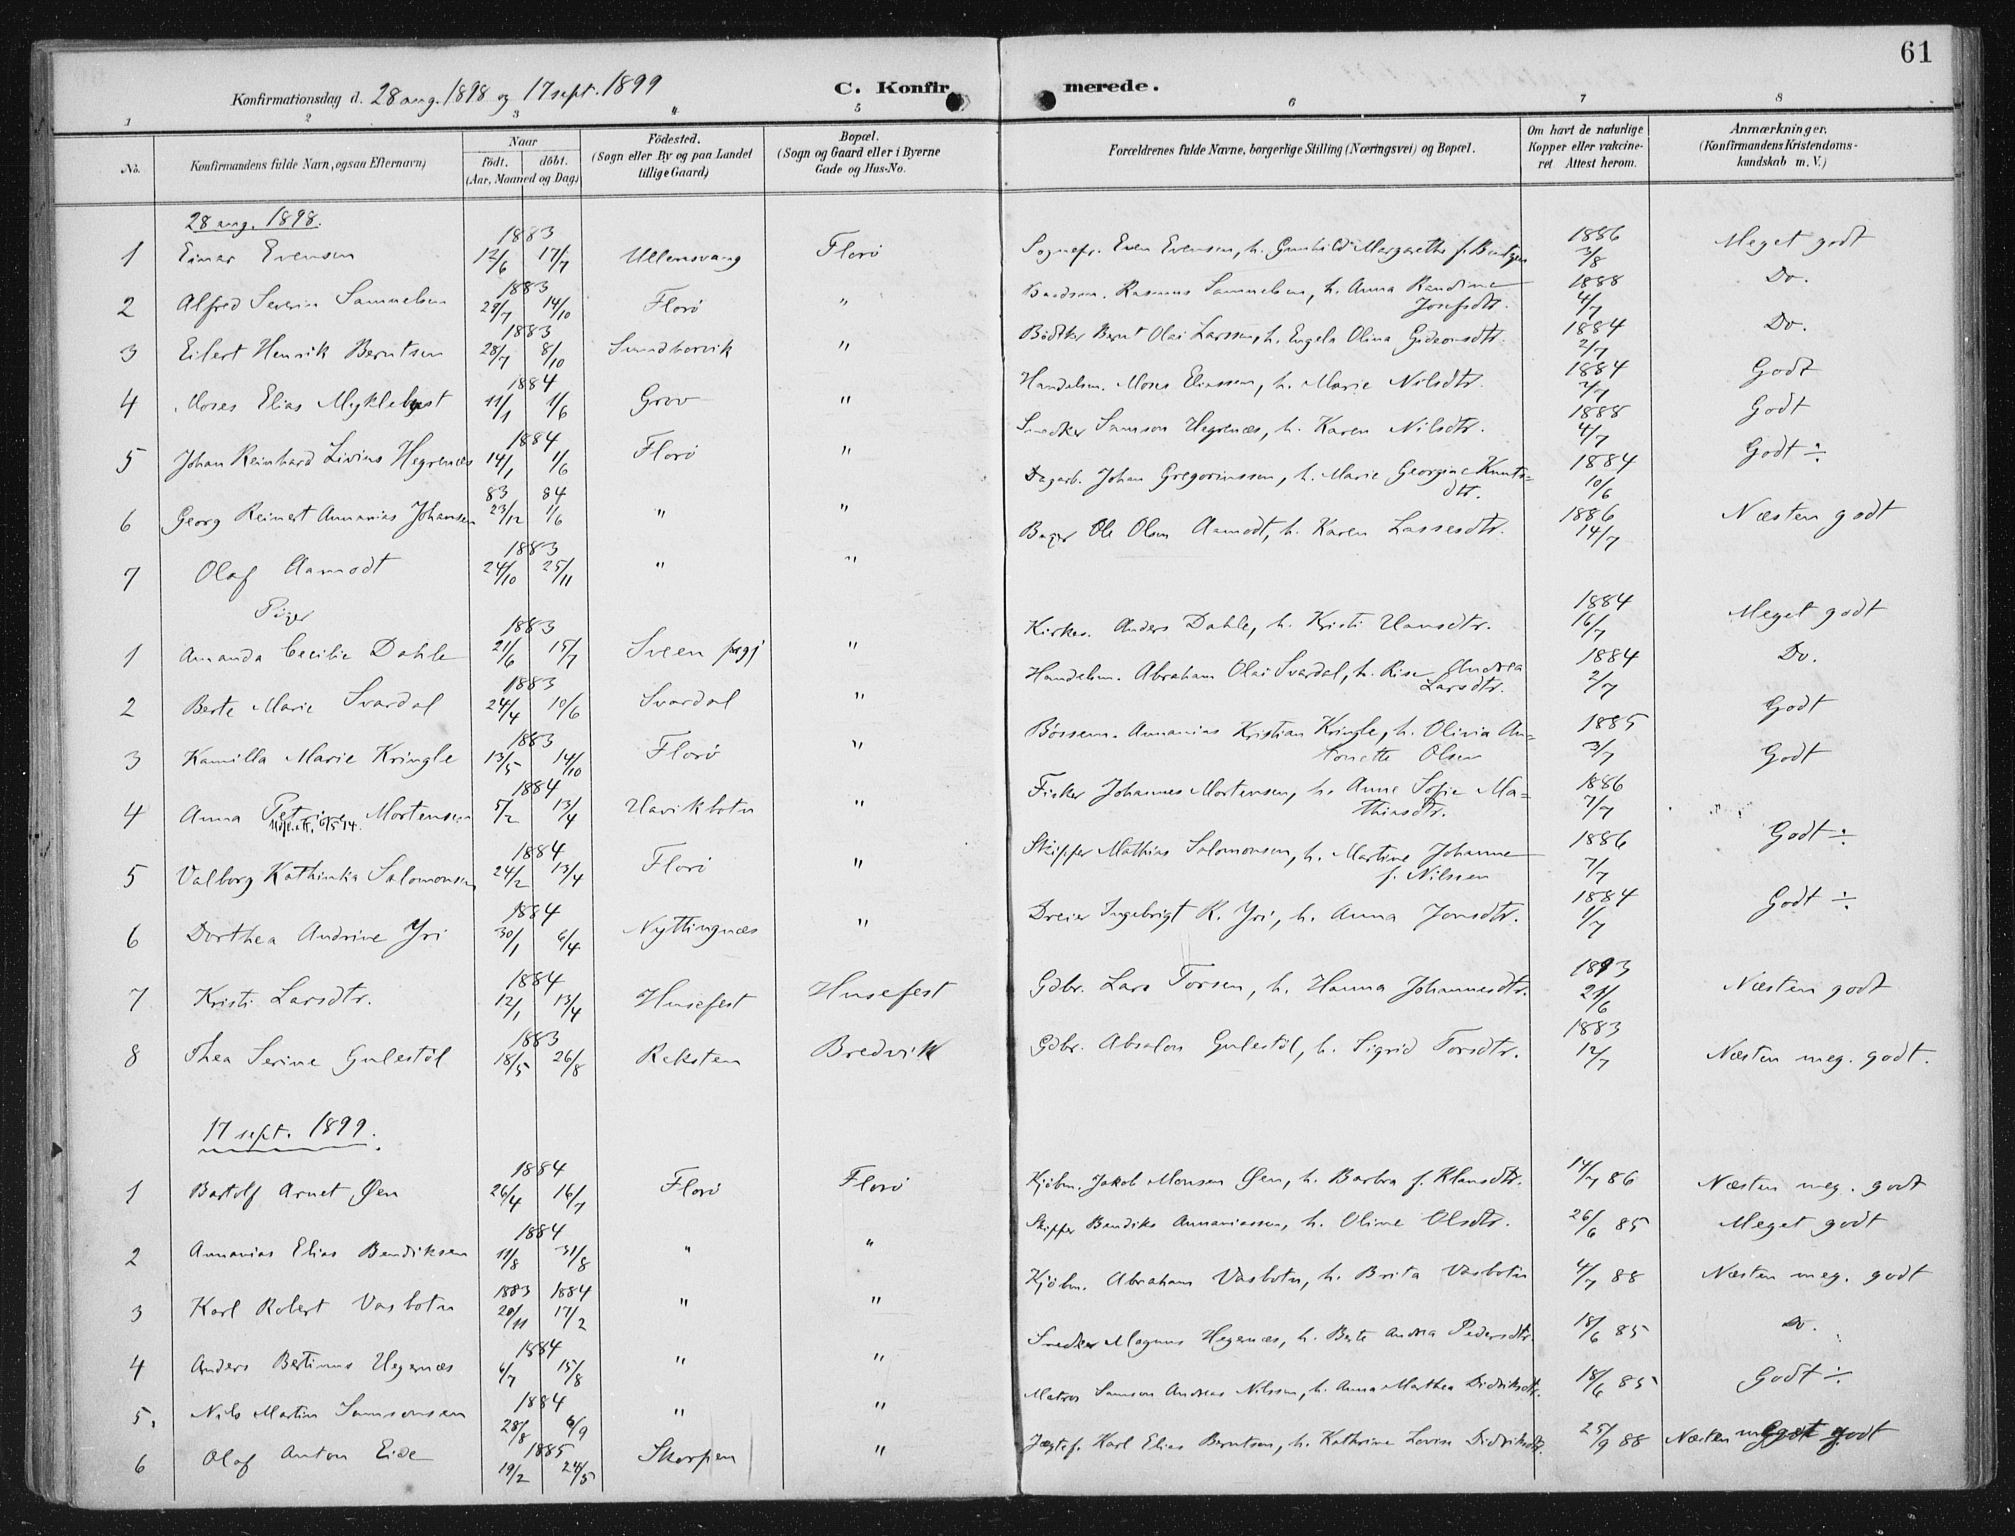 61
Konfirmationsdag d. 28 aug. 1898 og 17 sept. 1899 C. Konfir merede.
1 2 3 4 5 6 7 8
No. Konfirmandens fulde Navn, ogsaa Efternavn) Naar Födt. döbt. (Aar, Maaned og Dag) Födested. (Sogn eller By og paa Landet tillige Gaard) Bopæl. (Sogn og Gaard eller i Byerne Gade og Hus-No. Forældrenes fulde Navne, borgerlige Stilling (Næringsvei) og Bopæl. Om havt de naturlige Kopper eller vakcineret Attest herom. Anmærkninger. (Konfirmandens Kristendomskundskab m. V.)
28 aug. 1898.
1 Einar Evensen 1883 12/6 17/7 Ullensvang Florø Sognepr. Even Evensen, h. Gunhild Margarethe f. 1886 3/8 Meget godt
2 Alfred Severin Samuelsen 1883 29/7 14/10 Florø " Rasmus Samuelsen, h. Anna Randine Josefsdtr. 1888 4/7 Do.
3 Eilert Henrik Berntsen 1883 28/7 8/10 " Bødtker Bernt Olai Larssen, h. Engela Olina Gideonsdtr. 1884 2/7 Do.
4 Moses Elias Myklebust 1884 11/1 1/6 Grov " Handelsm. Moses Eliassen, h. Marie Nilsdtr. 1884 2/7 Godt
5 Johan Reinhard Livius Hegrenæs 1884 14/1 1/6 Florø " Snedker Samson Hegrenæs, h. Karen Nilsdtr. 1888 4/7 Godt
6 Georg Reinert Annanias Johansen 83 23/12 84 1/6 " " Dagarb. Johan Gregoriussen, h. Marie Georgine Knuts=dtr. 1884 10/6 Godt ÷
7 Olaf Aamodt 1883 24/10 25/11 " " Bager Ole Olsen Aamodt, h. Karen Lassesdtr. 1886 14/7 Næsten godt
Piger
1 Amanda Cecilie Dahle 1883 21/6 15/7 Sveen prgj " Kirkes. Anders Dahle, h. Kristi Hansdtr. 1884 16/7 Meget godt
2 Berte Marie Svardal 1883 24/4 10/6 Svardal " Handelsm. Abraham Olai Svardal, h. Andrea Larsdtr. 1884 2/7 Do.
3 Kamilla Marie Kringle 1883 13/5 14/10 Florø " Bøssem. Annanias Kristian Kringle, h. Olivia An=tonette Olsen 1885 3/7 Godt
4 Anna Petrine Mortensen 1884 5/2 13/4 Havikbotn " Fisker Johannes Mortensen, h. Anne Sofie Ma=thiasdtr. 1886 7/7 Godt
5 Valborg Kathinka Salomonsen 1884 24/2 13/4 Florø " Skipper Mathias Salomonsen, h. Martine Johanne f. Nilssen 1886 7/7 Godt ÷
6 Dorthea Andrine Yri 1884 30/1 6/4 Nyttingnæs " Dreier Ingebrigt K. Yri, h. Anna Jonsdtr. 1884 1/7 Godt ÷
7 Kristi Larsdtr. 1884 12/1 13/4 Husefest Husefest Gdbr. Lars Torsen, h. Hanna Johannesdtr. 1893 21/6 Næsten godt
8 Thea Serine Gulestöl 1883 18/5 26/8 Reksten Bredvik Gdbr. Absalon Gulestöl, h. Sigrid Torsdtr. 1883 12/7 Næsten meg. godt.
17 sept. 1899.
1 Bartolf Arnet Øen 1884 26/4 16/7 Florø Florø Kjøbm. Jakob Monsen Øen, h. Barbra f. Klausdtr. 14/7 86 Næsten meg. godt
2 Annanias Elias Bendiksen 1884 11/8 31/8 " " Skipper Bendiks Annaniassen, h. Oline Olsdtr. 26/6 85 Meget godt
3 Karl Robert Vasbotn 1883 20/11 1884 17/2 " " Kjøbm. Abraham Vasbotn, h. Brita Vasbotn 4/7 88 Næsten meg. godt
4 Anders Bertinus Hegrenæs 1884 6/7 15/8 " " Snedker Magnus Hegrenæs, h. Berte Andrea Pedersdtr. 18/6 85 Do.
5. Nils Martin Samsonsen 1884 28/8 6/9 " " Matros Samson Andreas Nilssen, h. Anna Marthea Didriksdtr. 18/6 85 Godt ÷
6 Olaf Anton Eide 1885 19/2 24/5 Skorpen " Karl Elias Berntsen, h. Kathrine Lovise Didriksdtr. 25/9 88 Næsten meget godt